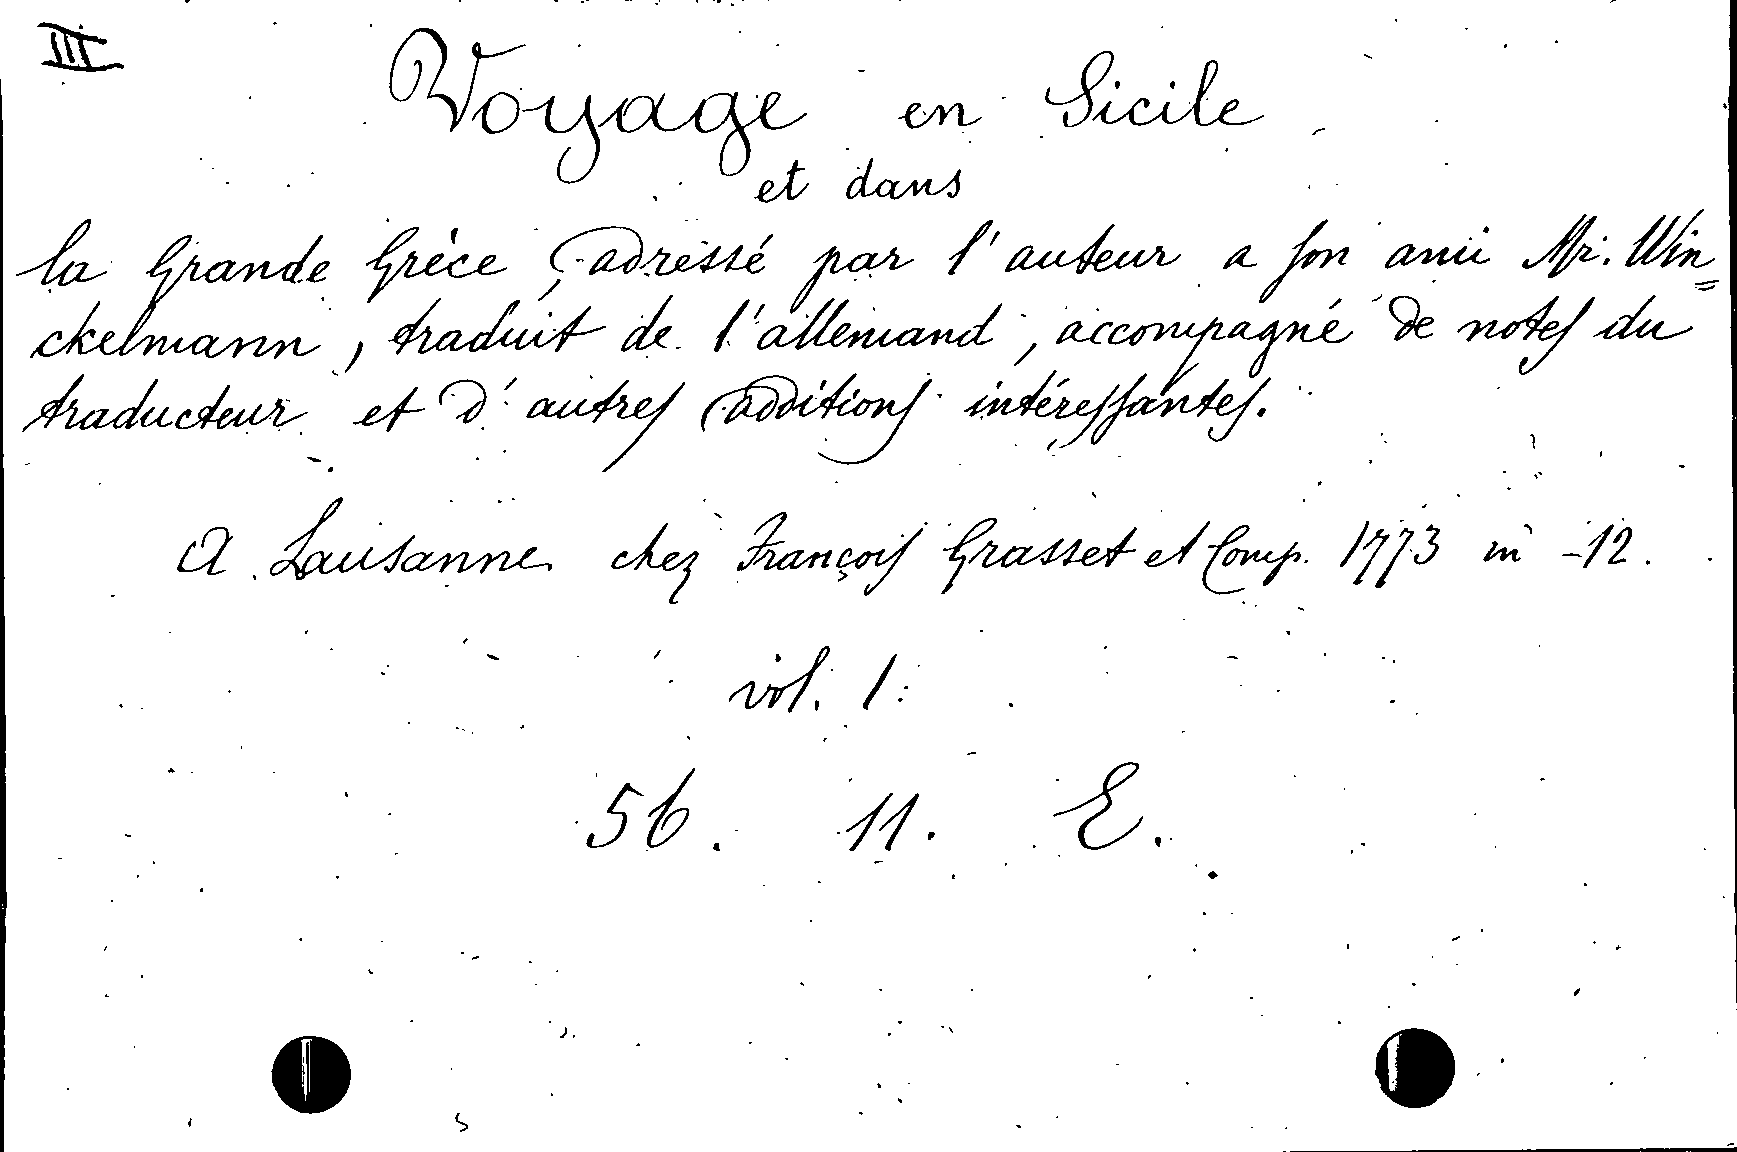 III
Voyage en Sicile
et dans
la Grande Grèce, adressé par l'auteur a son ami Mr. Win=
ckelmann, traduit de l'allemand, accompagné de notes du
traducteur et d'autres additions intéressantes.
A Lausanne chez François Grasset et Comp. 1773 in -12.
vol. 1.
56. 11. E.